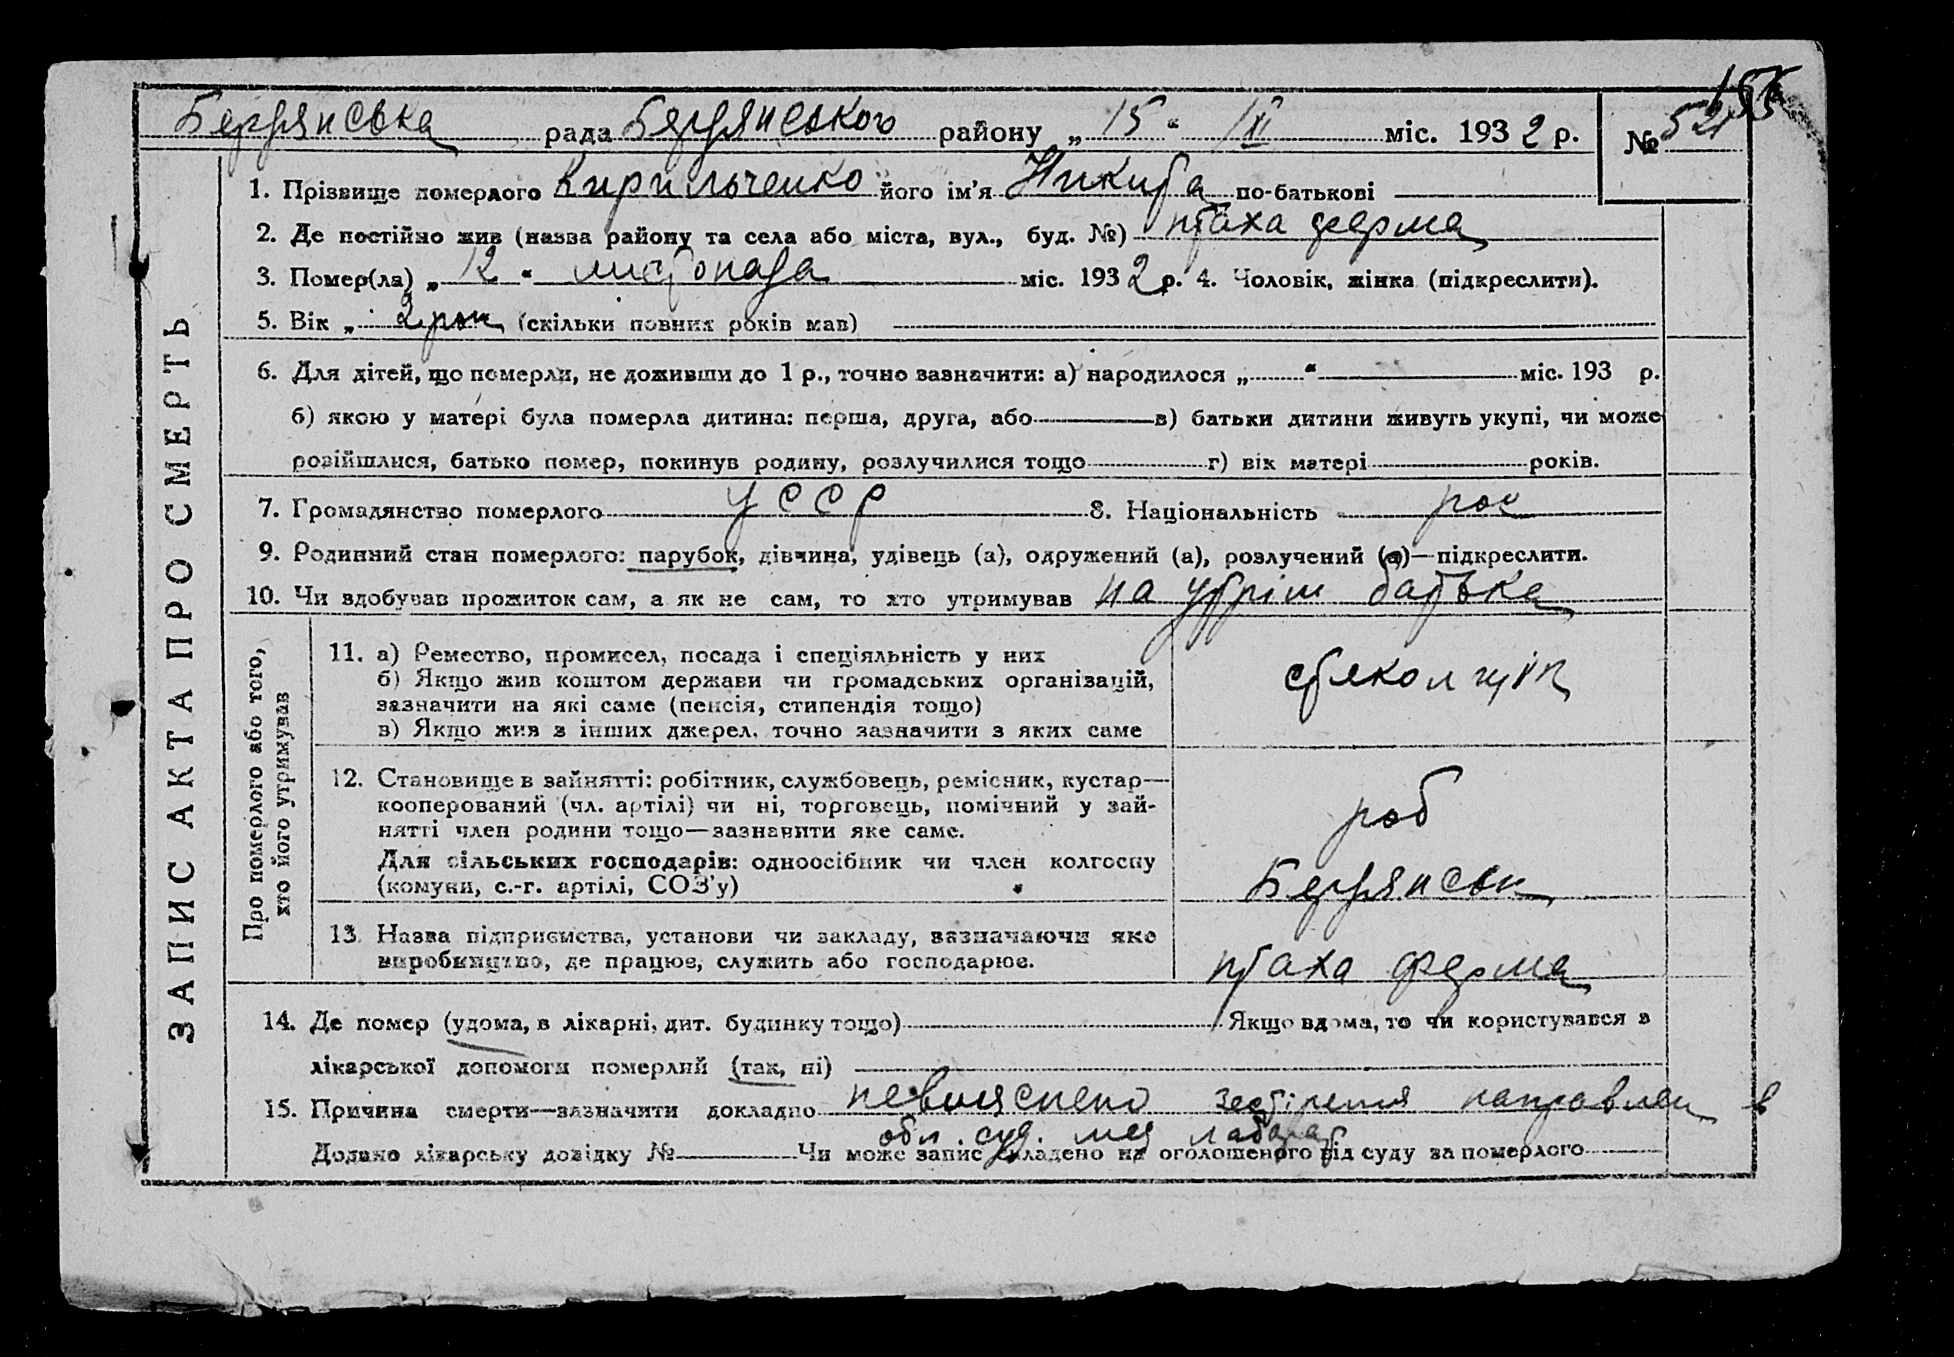 155
Бердянська рада Бердянського району „ 15 “ XI міс. 1932 р. № 521
1. Прізвище померлого Кирильченко його ім'я Никита по-батькові
2. Де постійно жив (назва району та села або міста, вул., буд. №) птаха ферма
3. Помер(ла) „ 12 “ листопада міс. 1932 р. 4. Чоловік, жінка (підкреслити).
5. Вік „ 2 рок (скільки повних років мав)
6. Для дітей, що померли, не доживши до 1 р., точно зазначити: а) народилося „ “ міс. 193 р.
б) якою у матері була померла дитина: перша, друга, або в) батьки дитини живуть укупі, чи може
розійшлися, батько помер, покинув родину, розлучилися тощо г) вік матері років.
7. Громадянство померлого УССР 8. Національність рос
9. Родинний стан померлого: парубок, дівчина, удівець (а), одружений (а), розлучений (а)—підкреслити.
10. Чи здобував прожиток сам, а як не сам, то хто утримував на утрім батька
ЗАПИС АКТА ПРО СМЕРТЬ
Про померлого або того,
хто його утримував
11. а) Ремество, промисел, посада і спеціяльність у них
б) Якщо жив коштом держави чи громадських організацій,
зазначити на які саме (пенсія, стипендія тощо)
в) Якщо жив з інших джерел, точно зазначити з яких саме
12. Становище в зайнятті: робітник, службовець, ремісник, кустар—
кооперований (чл. артілі) чи ні, торговець, помічний у зай-
нятті член родини тощо—зазначити яке саме.
роб
Для сільських господарів: одноосібник чи член колгоспу
(комуни, с.-г. артілі, СОЗ'у)
Бердянськ
13. Назва підприємства, установи чи закладу, зазначаючи яке
виробництво, де працює, служить або господарює.
птаха ферма
14. Де помер (удома, в лікарні, дит. будинку тощо) Якщо вдома, то чи користувався з
лікарської допомоги померлий (так, ні)
15. Причина смерти—зазначити докладно невияснено направлен в
обл. суд. мед лаборат
Додано лікарську довідку № Чи може запис складено на оголошеного від суду за померлого